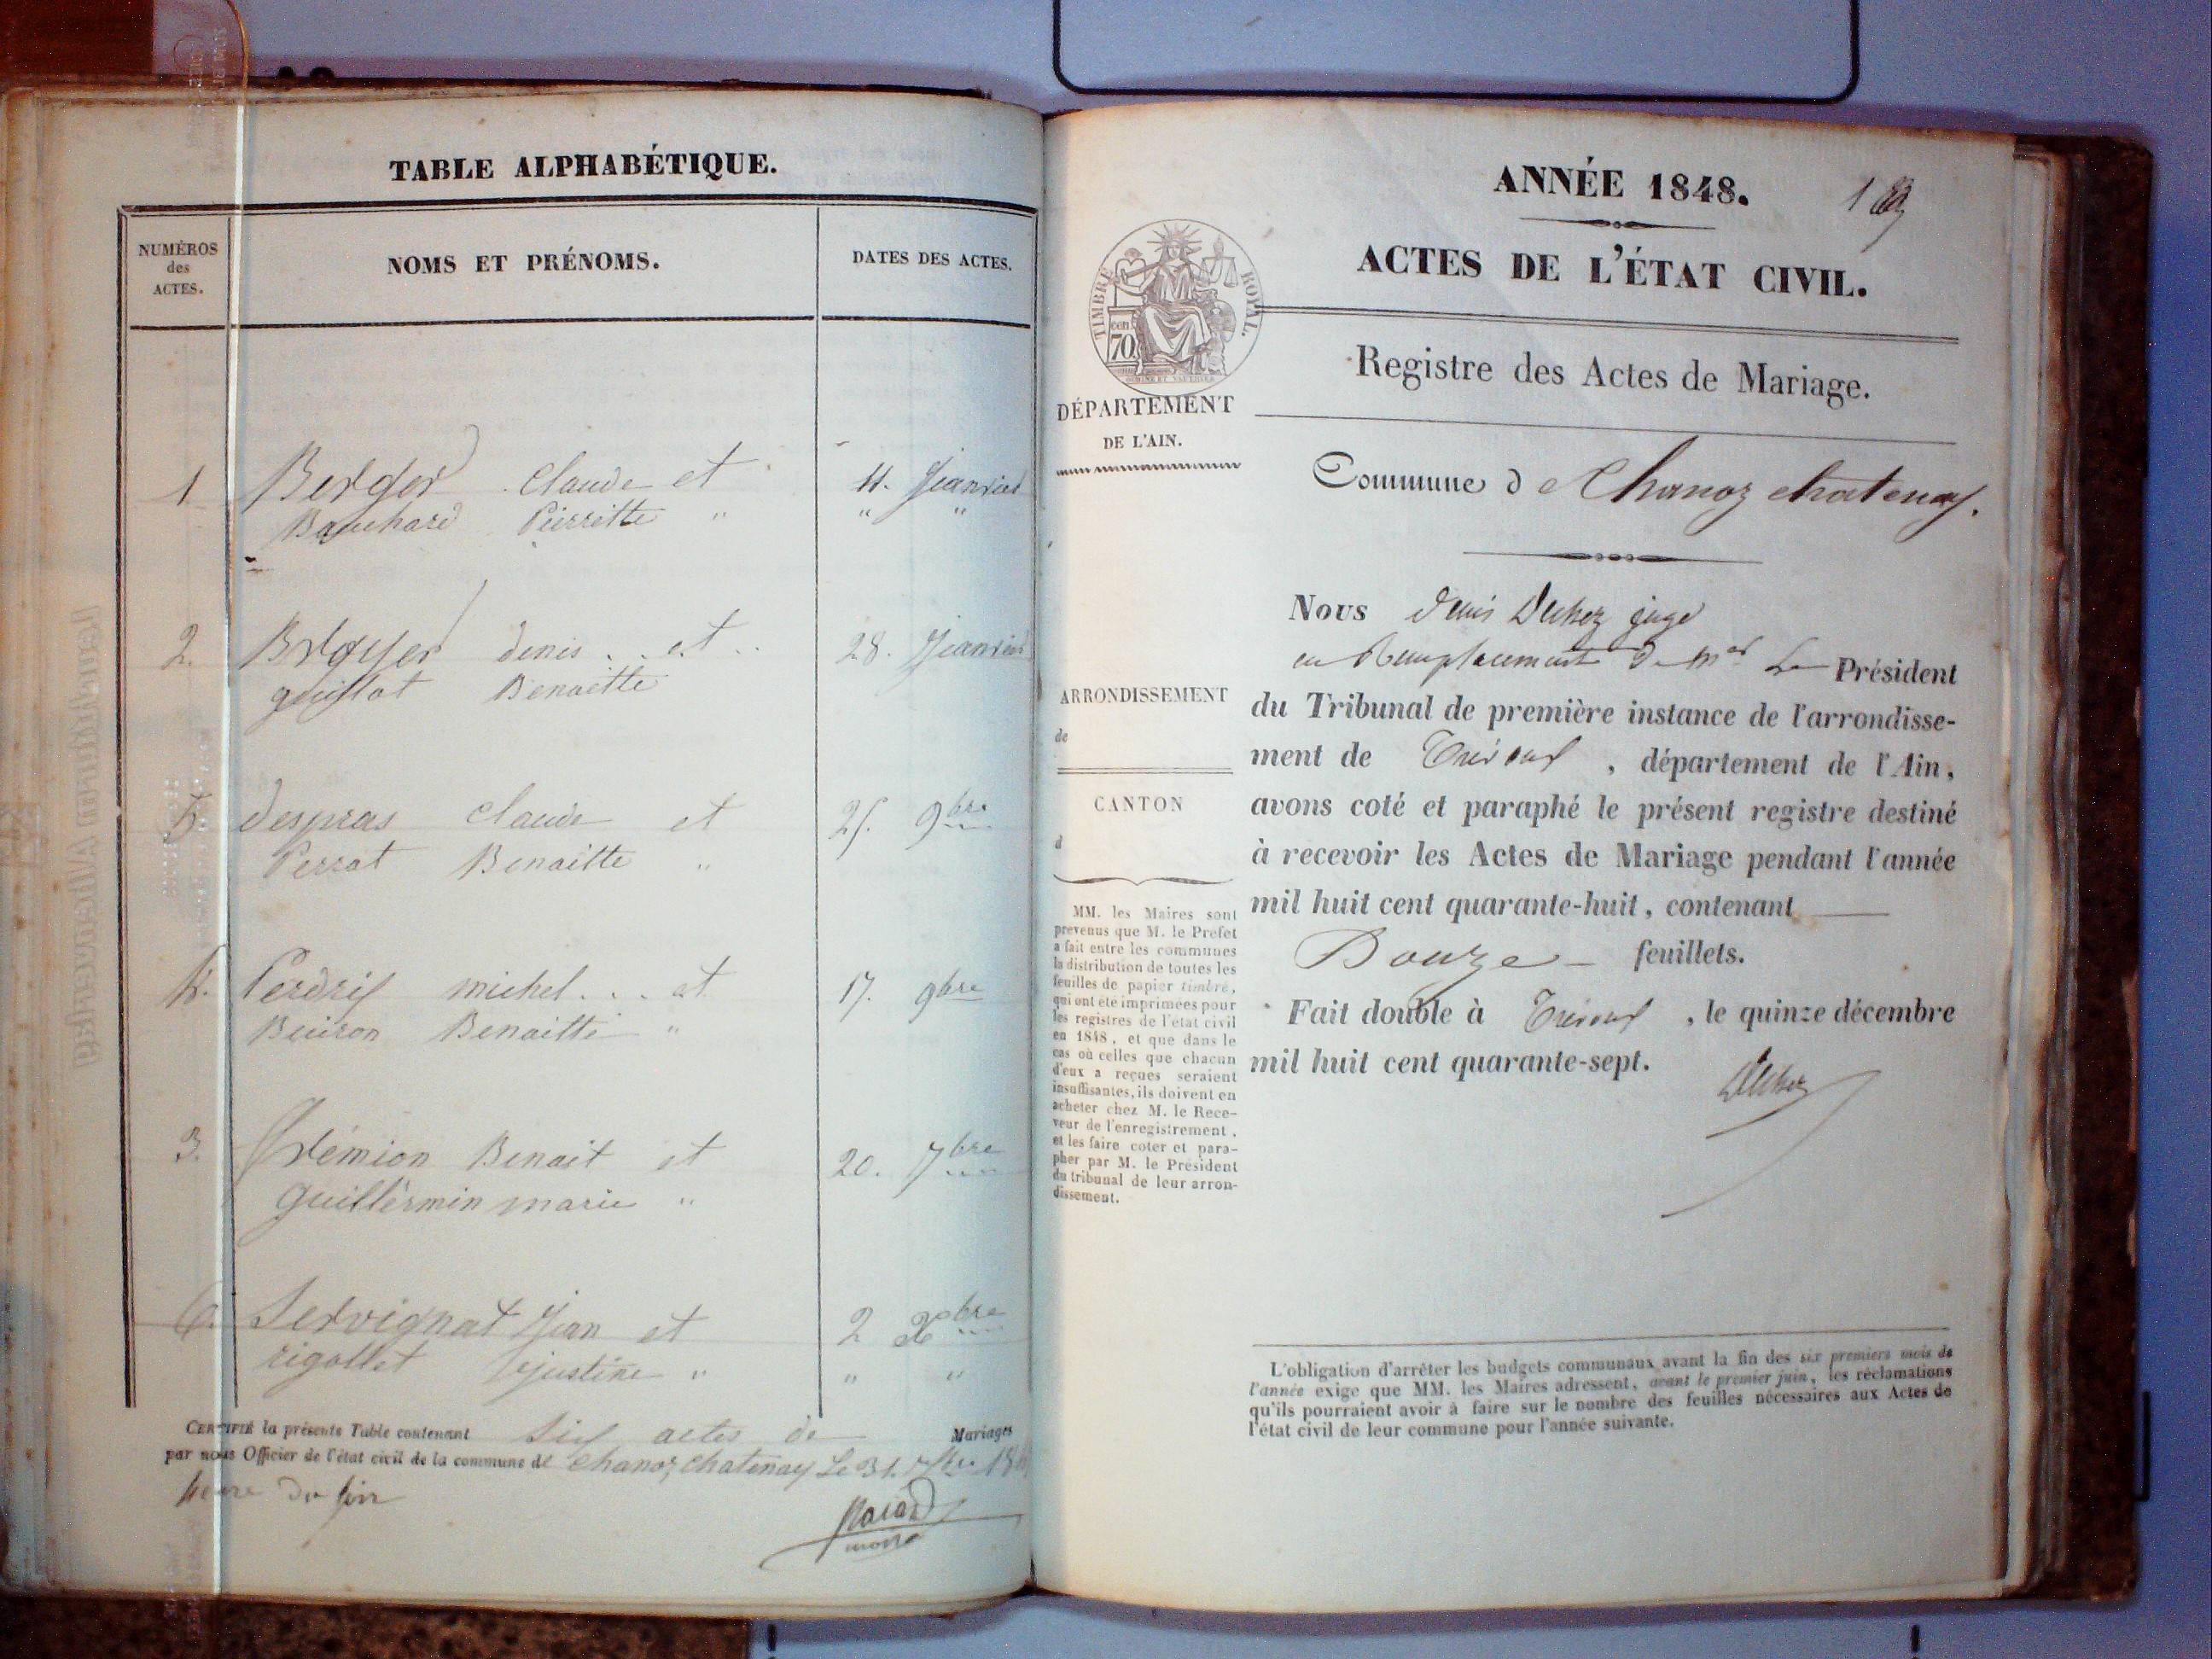 TABLE ALPHABÉTIQUE.
NUMÉROS
des
ACTES.
NOMS ET PRÉNOMS.
DATES DES ACTES.
1 Berger Claude et 11. Jeanvier
Bauchard Pierrette " " "
2. Broyer denis . . et . . 28. Jeanvier
guillot Benoitte
5 despras Claude et 25. 9bre
Perrat Benoitte "
4. Perdrix michel . . . et 17. 9bre
Buiron Benoitte "
3. Trémion Benoit et 20. 7bre
Guillermin marie "
6. Servignat Jean et 2 Xbre
rigollet justine " " "
CERTIFIÉ la présente Table contenant Six actes de Mariages
par nous Officier de l'état civil de la commune de Chanoz Chatenay Le 31.
heure du soir
ANNÉE 1848.
ACTES DE L'ÉTAT CIVIL.
TIMBRE ROYAL.
cen
70
Registre des Actes de Mariage.
DÉPARTEMENT
DE L'AIN.
Commune d e Chanoz chatenay.
Nous denis Duhez juge
en Remplacement de Mr Le Président
du Tribunal de première instance de l'arrondisse-
ment de Trévoux, département de l'Ain,
avons coté et paraphé le présent registre destiné
à recevoir les Actes de Mariage pendant l'année
mil huit cent quarante-huit, contenant
Douze feuillets.
Fait double à Trévoux, le quinze décembre
mil huit cent quarante-sept.
Duhez
ARRONDISSEMENT
de
CANTON
d
MM. les Maires sont
prévenus que M. le Préfet
a fait entre les communes
la distribution de toutes les
feuilles de papier timbré,
qui ont été imprimées pour
les registres de l'état civil
en 1848, et que dans le
cas où celles que chacun
d'eux a reçues seraient
insuffisantes, ils doivent en
acheter chez M. le Rece-
veur de l'enregistrement,
et les faire coter et para-
pher par M. le Président
du tribunal de leur arron-
dissement.
L'obligation d'arrêter les budgets communaux avant la fin des six premiers mois de
l'année exige que MM. les Maires adressent, avant le premier juin, les réclamations
qu'ils pourraient avoir à faire sur le nombre des feuilles nécessaires aux Actes de
l'état civil de leur commune pour l'année suivante.